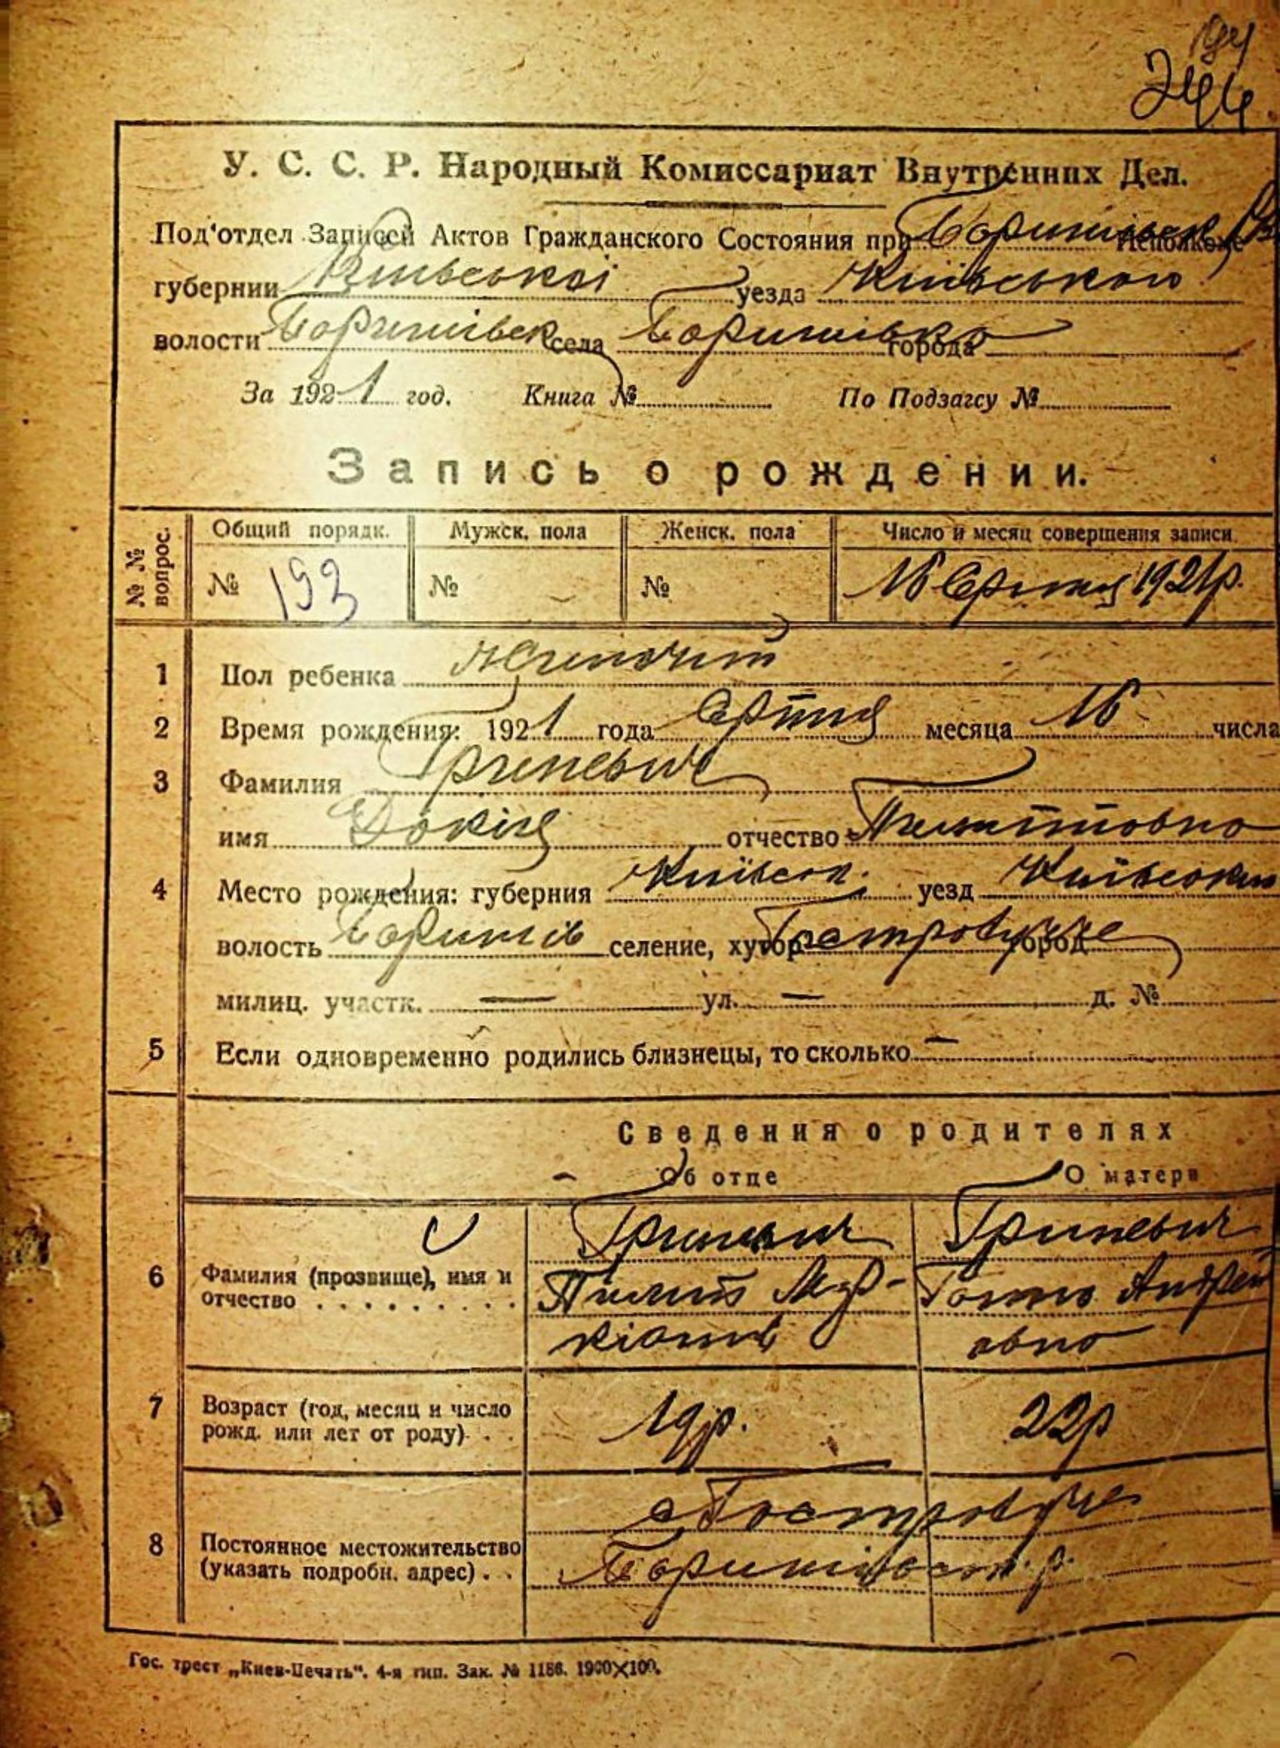 244
У. С. С. Р. Народный Комиссариат Внутренних Дел.
Под'отдел Записей Актов Гражданского Состояния при Исполкоме
губернии Київської уезда Київського
волости села города
За 1921 год. Книга № По Подзагсу №
Запись о рождении.
№ № вопрос. Общий порядк. Мужск. пола Женск. пола Число и месяц совершения записи
№ 193 № № 16 Серпня 1921р.
1 Пол ребенка жіночий
2 Время рождения: 1921 года Серпня месяца 16 числа
3 Фамилия Гриневич
имя Докія отчество Пилиповна
4 Место рождения: губерния Київськ. уезд
волость селение, хутор город
милиц. участк. — ул. — д. №
5 Если одновременно родились близнецы, то сколько —
Сведения о родителях
Об отце О матери
6 Фамилия (прозвище), имя и отчество Гриневич Гриневич
Пилип Мар-
кіянів
7 Возраст (год, месяц и число рожд. или лет от роду) 19р. 22р
8 Постоянное местожительство (указать подробн. адрес)
Гос. трест „Киев-Печать“. 4-я тип. Зак. № 1186. 1900×100.